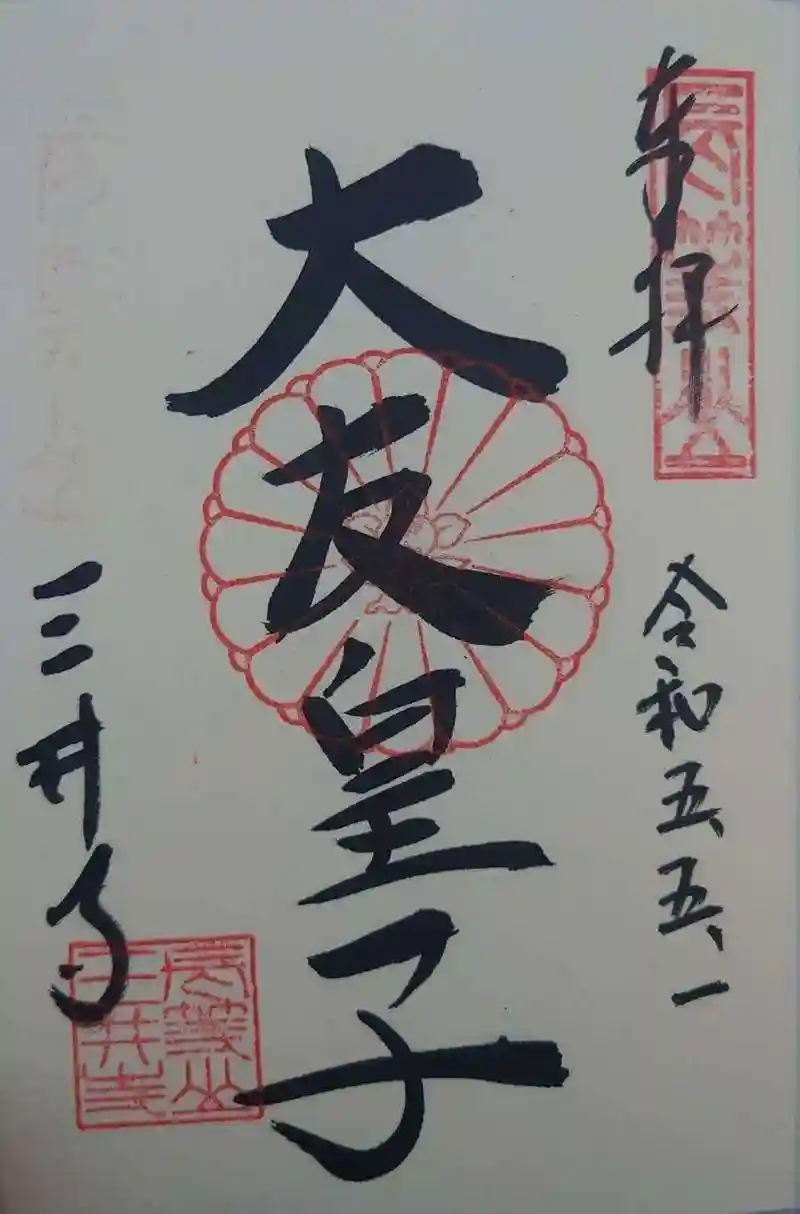 奉拝
長等山
令和五、五、一
大友皇子
三井寺
長等山
三井寺